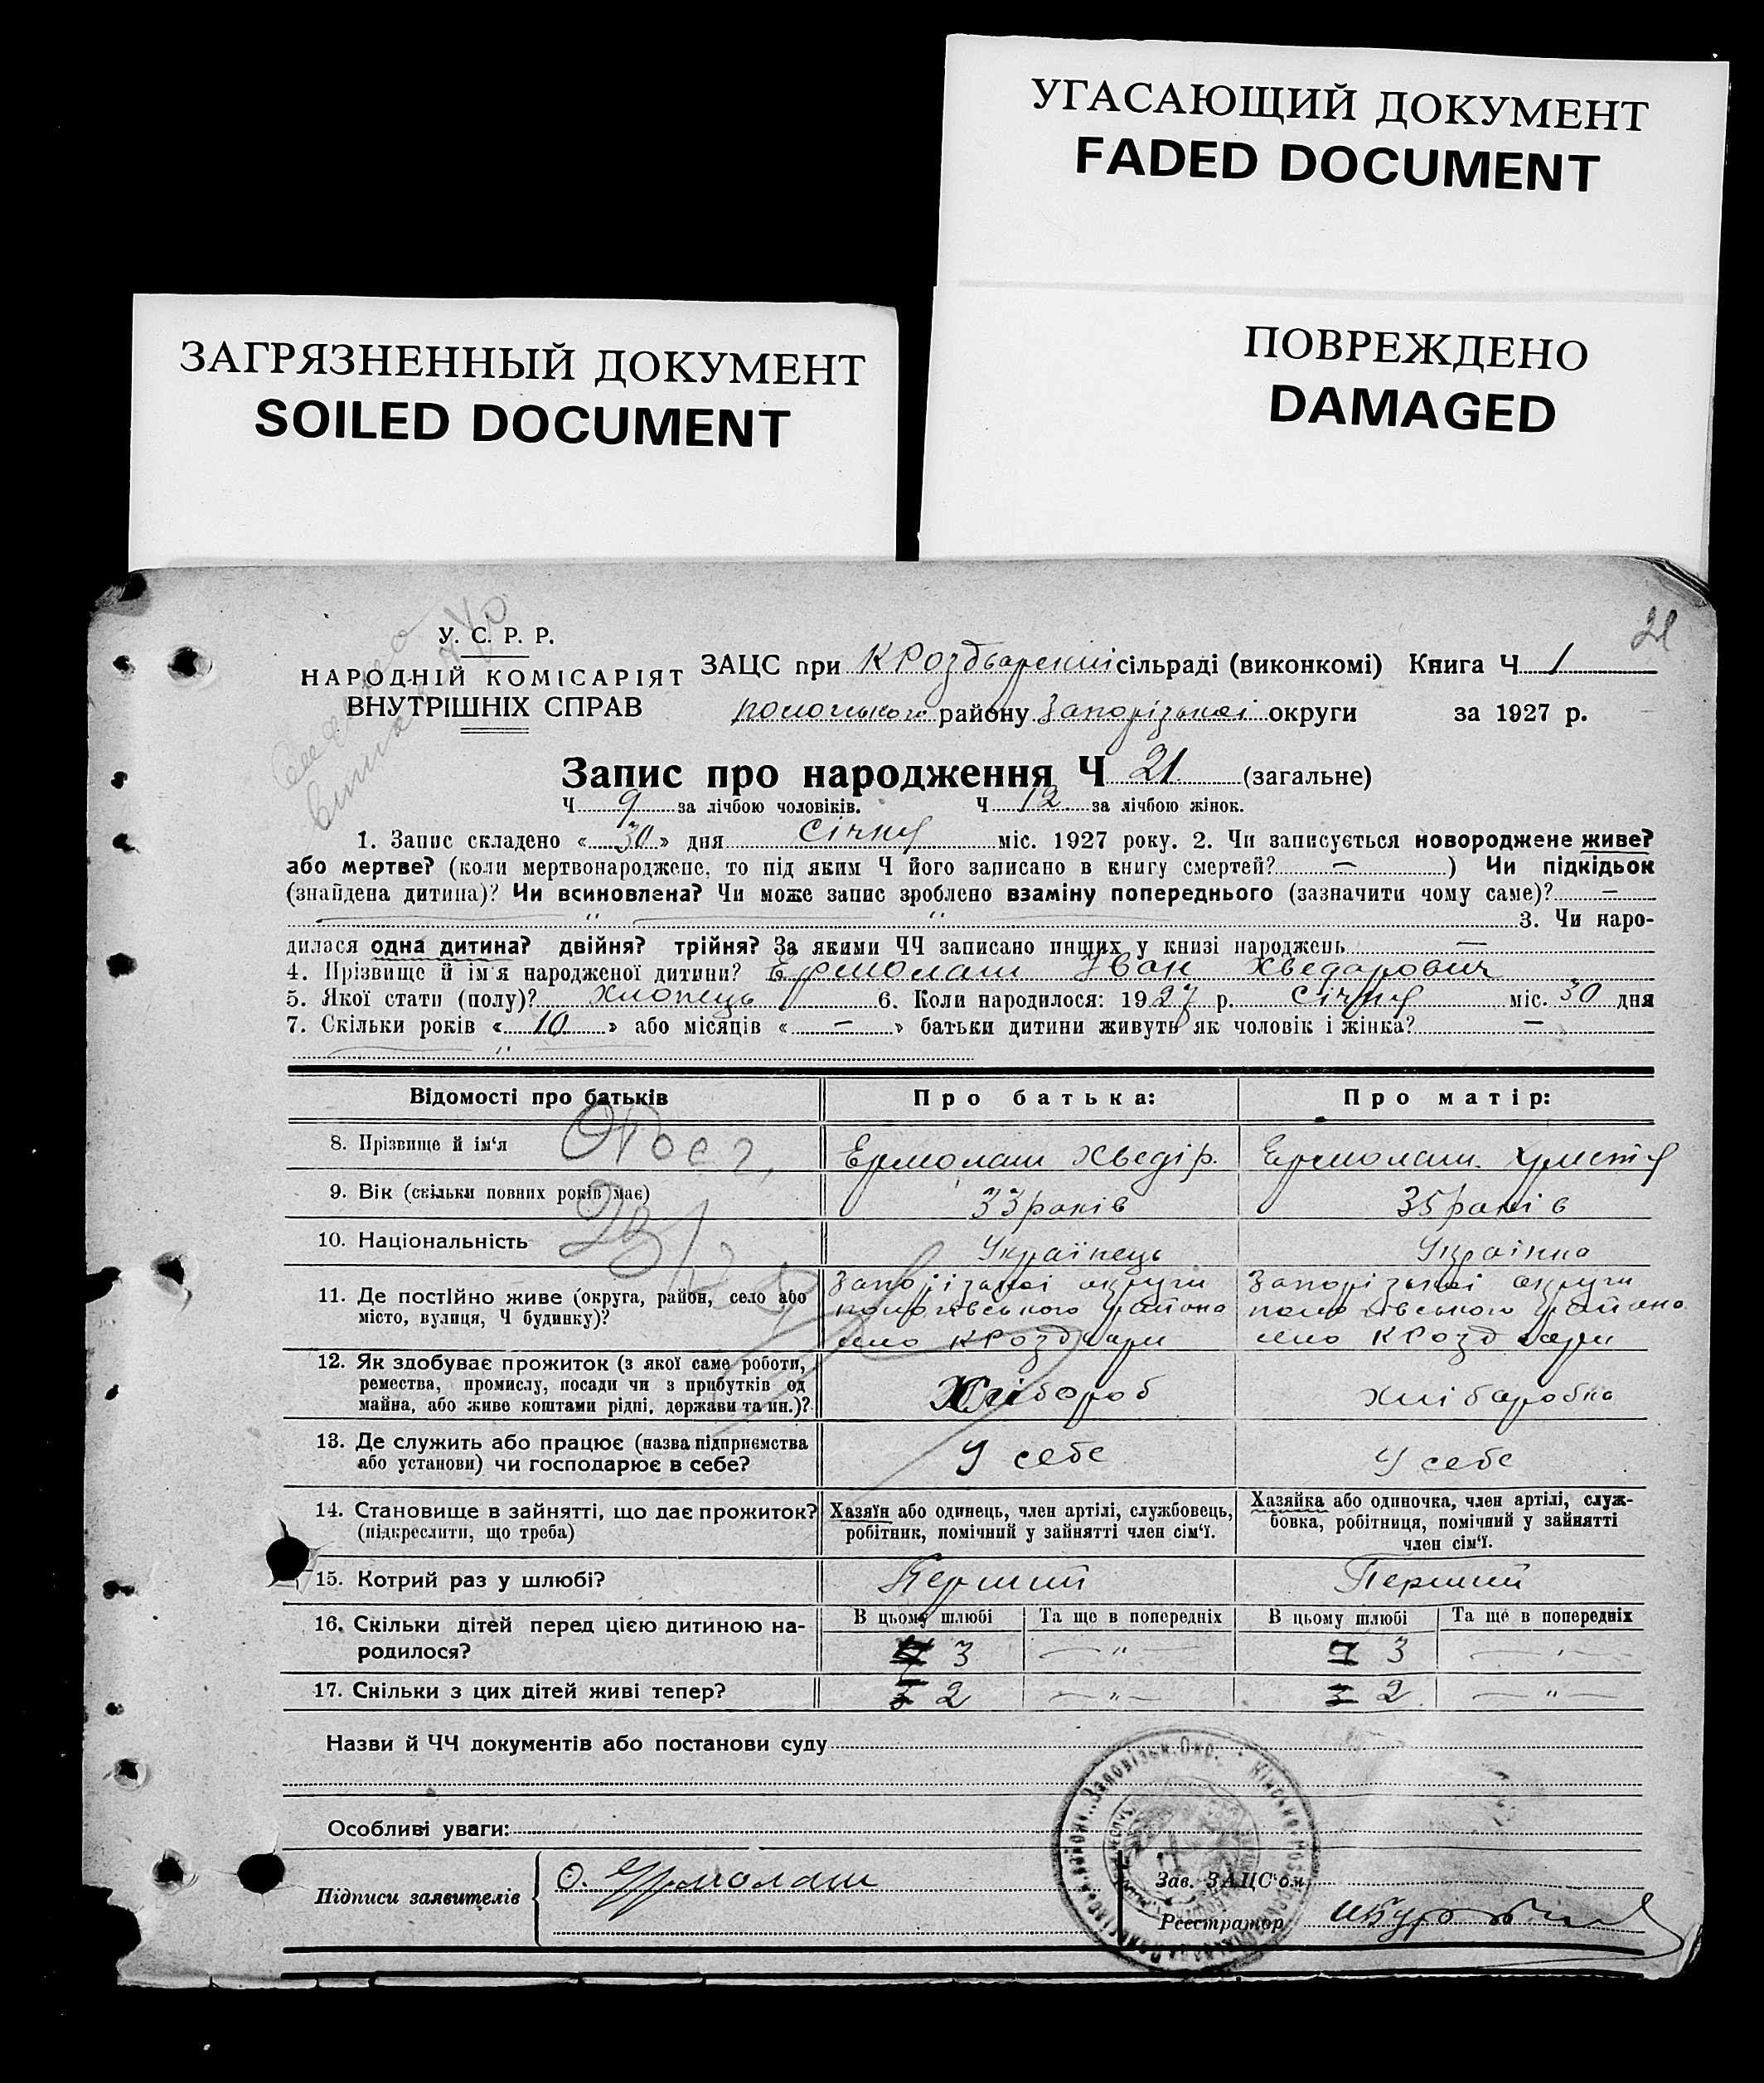 УГАСАЮЩИЙ ДОКУМЕНТ
FADED DOCUMENT
ПОВРЕЖДЕНО
DAMAGED
ЗАГРЯЗНЕННЫЙ ДОКУМЕНТ
SOILED DOCUMENT
21
У. С. Р. Р.
НАРОДНІЙ КОМІСАРІЯТ
ВНУТРІШНІХ СПРАВ
ЗАЦС при К Роздварский сільраді (виконкомі) Книга Ч 1
району Запорізької округи за 1927 р.
Запис про народження Ч 21 (загальне)
Ч 9 за лічбою чоловіків. Ч 12 за лічбою жінок.
1. Запис складено « 30 » дня січня міс. 1927 року. 2. Чи записується новороджене живе?
або мертве? (коли мертвонароджене, то під яким Ч його записано в книгу смертей? — ) Чи підкідьок
(знайдена дитина)? Чи всиновлена? Чи може запис зроблено взаміну попереднього (зазначити чому саме)? —
" " 3. Чи наро-
дилася одна дитина? двійня? трійня? За якими ЧЧ записано инщих у книзі народжень —
4. Прізвище й ім'я народженої дитини? Ермолаш Іван Хведорович
5. Якої стати (полу)? Хлопець 6. Коли народилося: 1927 р. січня міс. 30 дня
7. Скільки років « 10 » або місяців « — » батьки дитини живуть як чоловік і жінка? —
Відомості про батьків Про батька: Про матір:
8. Прізвище й ім'я Ермолаш Хведір. Ермолаш. Христя
9. Вік (скільки повних років має) 33 років 35 років
10. Національність Українець Українка
11. Де постійно живе (округа, район, село або
місто, вулиця, Ч будинку)?
Запорізької округи
пологівського района
село К Роздори
Запорізької округи
пологівського района
село К Роздори
12. Як здобуває прожиток (з якої саме роботи,
ремества, промислу, посади чи з прибутків од
майна, або живе коштами рідні, держави та ин.)?
Хлібороб хліборобка
13. Де служить або працює (назва підприємства
або установи) чи господарює в себе?
У себе У себе
14. Становище в зайнятті, що дає прожиток?
(підкреслити, що треба)
Хазяїн або одинець, член артілі, службовець,
робітник, помічний у зайнятті член сім'ї.
Хазяйка або одиночка, член артілі, служ-
бовка, робітниця, помічний у зайнятті
член сім'ї.
15. Котрий раз у шлюбі? Перший Перший
16. Скільки дітей перед цією дитиною на-
родилося?
В цьому шлюбі Та ще в попередніх В цьому шлюбі Та ще в попередніх
3 — " — 3 — " —
17. Скільки з цих дітей живі тепер? 3 2 — " — 3 2 — " —
Назви й ЧЧ документів або постанови суду
Особливі уваги:
Підписи заявителів О. Ермолаш
Зав. ЗАЦС'ом
Реєстратор